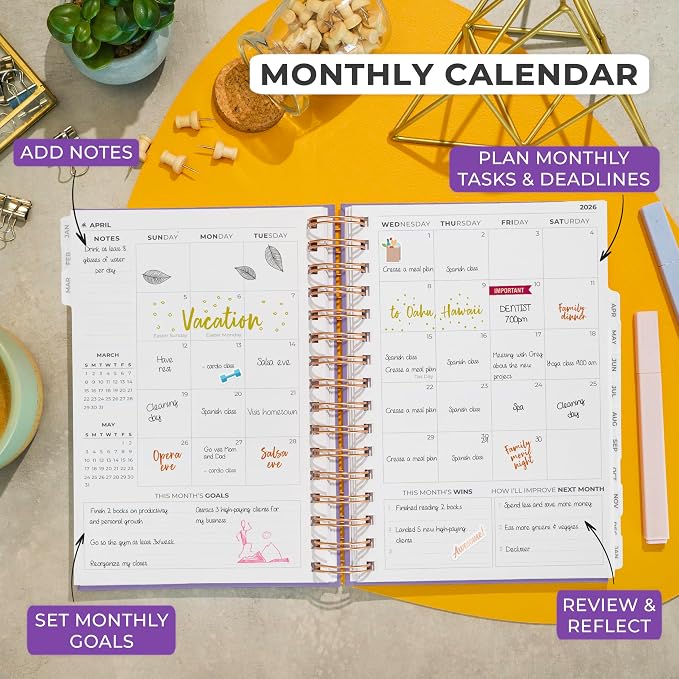 MONTHLY CALENDAR
ADD NOTES
PLAN MONTHLY
TASKS & DEADLINES
APRIL
NOTES
Drink at least 8
glasses of water
per day
SUNDAY MONDAY TUESDAY
5 6 7
Vacation
Easter Sunday Easter Monday
12 13 14
Have
rest
- cardio class
Salsa eve
19 20 21
Cleaning
day
Spanish class
Visit hometown
26 27 28
Opera
eve
Go see Mom
and Dad
- cardio class
Salsa
eve
MARCH
S M T W T F S
1 2 3 4 5 6 7
8 9 10 11 12 13 14
15 16 17 18 19 20 21
22 23 24 25 26 27 28
29 30 31
MAY
S M T W T F S
1 2
3 4 5 6 7 8 9
10 11 12 13 14 15 16
17 18 19 20 21 22 23
24 25 26 27 28 29 30
31
THIS MONTH'S GOALS
Finish 2 books on productivity
and personal growth
Go to the gym at least 3x/week
Reorganize my closet
Attract 3 high-paying clients for
my business
JAN
FEB
MAR
2026
WEDNESDAY THURSDAY FRIDAY SATURDAY
1 2 3 4
Create a meal plan
Spanish class
8 9 10 11
to Oahu, Hawaii
IMPORTANT
DENTIST
7:00pm
Family
dinner
15 16 17 18
Spanish class
Create a meal plan
Tax Day
Spanish class
Meeting with Greg
about the new
project
Yoga class 9:00 am
22 23 24 25
Create a meal plan
Spanish class
Spa
Cleaning
day
29 30
Create a meal plan
Spanish class
Family
movie
night
THIS MONTH'S WINS
1 Finished reading 2 books
2 Landed 5 new high-paying
clients
3
Awesome!
HOW I'LL IMPROVE NEXT MONTH
1 Spend less and save more money
2 Eat more greens & veggies
3 Declutter
APR
MAY
JUN
JUL
AUG
SEP
OCT
NOV
JAN
SET MONTHLY
GOALS
REVIEW &
REFLECT